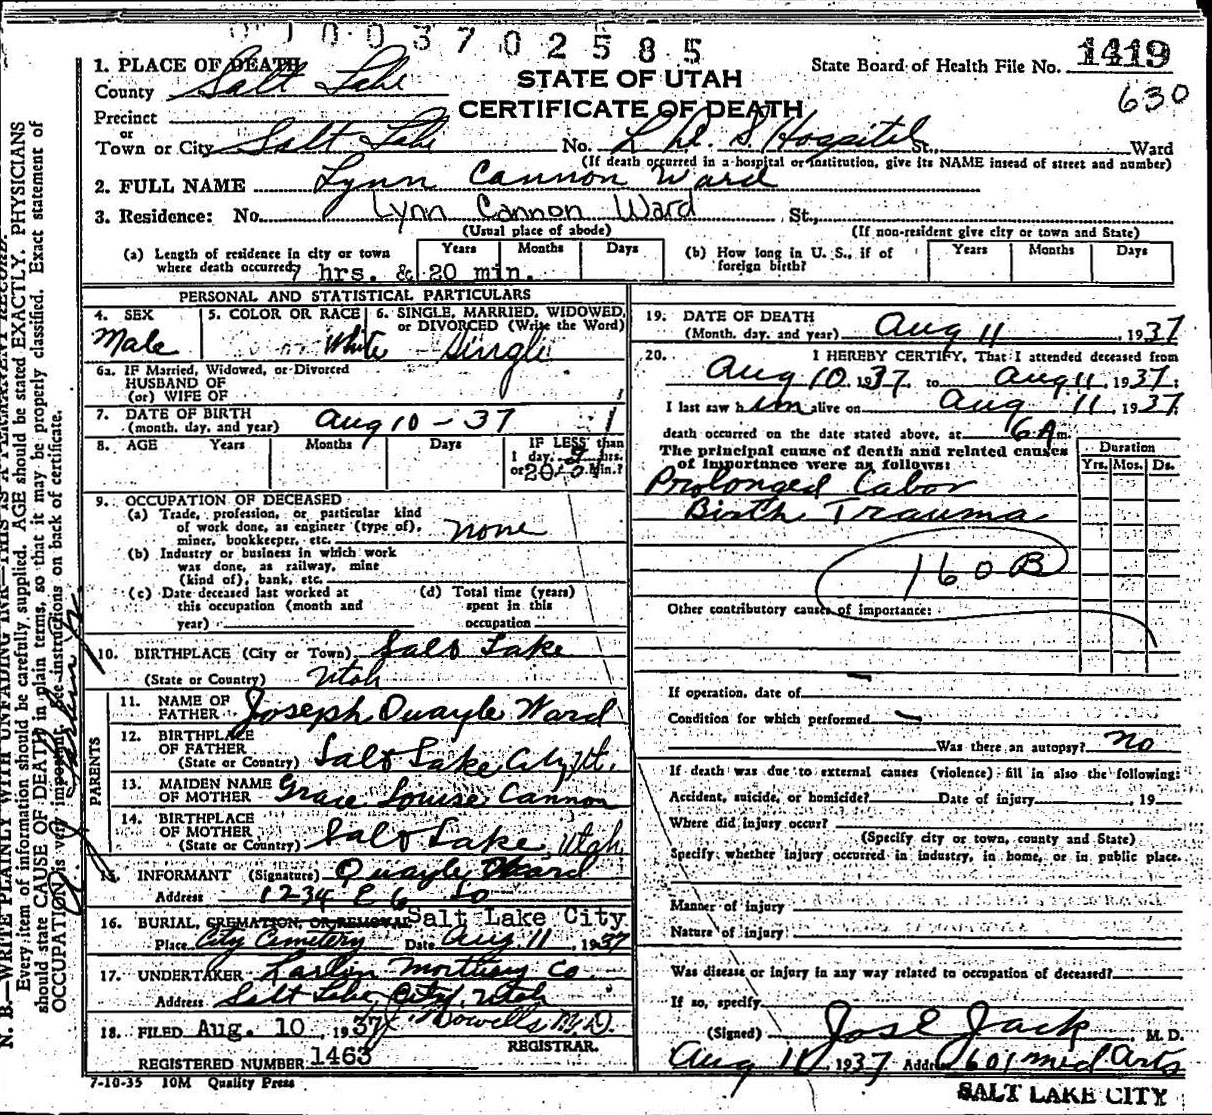 003702585
1419
1. PLACE OF DEATH
STATE OF UTAH
State Board of Health File No.
County Salt Lake
CERTIFICATE OF DEATH
630
Precinct
or
Town or City Salt Lake No. L. D. S. Hospital St. Ward
(If death occurred in a hospital or institution, give its NAME insead of street and number)
2. FULL NAME Lynn Cannon Ward
3. Residence: No. Lynn Cannon Ward St.,
(Usual place of abode) (If non-resident give city or town and State)
(a) Length of residence in city or town where death occurred 7 hrs. & 20 min.
Years Months Days
(b) How long in U. S., if of foreign birth?
Years Months Days
PERSONAL AND STATISTICAL PARTICULARS
4. SEX Male
5. COLOR OR RACE White
6. SINGLE, MARRIED, WIDOWED, or DIVORCED (Write the Word) Single
6a. IF Married, Widowed, or Divorced
HUSBAND OF
(or) WIFE OF
7. DATE OF BIRTH
(month, day, and year) Aug 10 - 37
8. AGE Years Months Days
IF LESS than
1 day, hrs.
or 20 min.?
9. OCCUPATION OF DECEASED
(a) Trade, profession, or particular kind
of work done, as engineer (type of),
miner, bookkeeper, etc. none
(b) Industry or business in which work
was done, as railway, mine
(kind of), bank, etc.
(c) Date deceased last worked at
this occupation (month and
year)
(d) Total time (years)
spent in this
occupation
10. BIRTHPLACE (City or Town) Salt Lake
(State or Country) Utah
PARENTS
11. NAME OF
FATHER Joseph Quayle Ward
12. BIRTHPLACE
OF FATHER
(State or Country) Salt Lake City Ut.
13. MAIDEN NAME
OF MOTHER Grace Louise Cannon
14. BIRTHPLACE
OF MOTHER
(State or Country) Salt Lake, Utah
15. INFORMANT (Signature) Quayle Ward
Address 1234 E 6 So
16. BURIAL, CREMATION, OR REMOVAL Salt Lake City
Place City Cemetery Date Aug 11, 1937
17. UNDERTAKER Larkin Mortuary Co
Address Salt Lake City, Utah
18. FILED Aug. 10, 1937 Howells M.D.
REGISTRAR.
REGISTERED NUMBER 1463
7-10-35 10M Quality Press
19. DATE OF DEATH
(Month, day, and year) Aug 11, 1937
20. I HEREBY CERTIFY, That I attended deceased from
Aug 10, 1937, to Aug 11, 1937;
I last saw him alive on Aug 11, 1937
death occurred on the date stated above, at 6 A m.
The principal cause of death and related causes
of importance were as follows:
Duration
Yrs. Mos. Ds.
Prolonged Labor
Birth Trauma
160B
Other contributory causes of importance:
If operation, date of
Condition for which performed
Was there an autopsy? no
If death was due to external causes (violence) fill in also the following:
Accident, suicide, or homicide? Date of injury , 19
Where did injury occur?
(Specify city or town, county and State)
Specify whether injury occurred in industry, in home, or in public place.
Manner of injury
Nature of injury
Was disease or injury in any way related to occupation of deceased?
If so, specify
(Signed) Jos E Jack M. D.
Aug 11, 1937 Address 601 Med Arts
SALT LAKE CITY
N. B.—WRITE PLAINLY WITH UNFADING INK—THIS IS A PERMANENT RECORD.
Every item of information should be carefully supplied. AGE should be stated EXACTLY. PHYSICIANS
should state CAUSE OF DEATH in plain terms, so that it may be properly classified. Exact statement of
OCCUPATION is very important. See instructions on back of certificate.